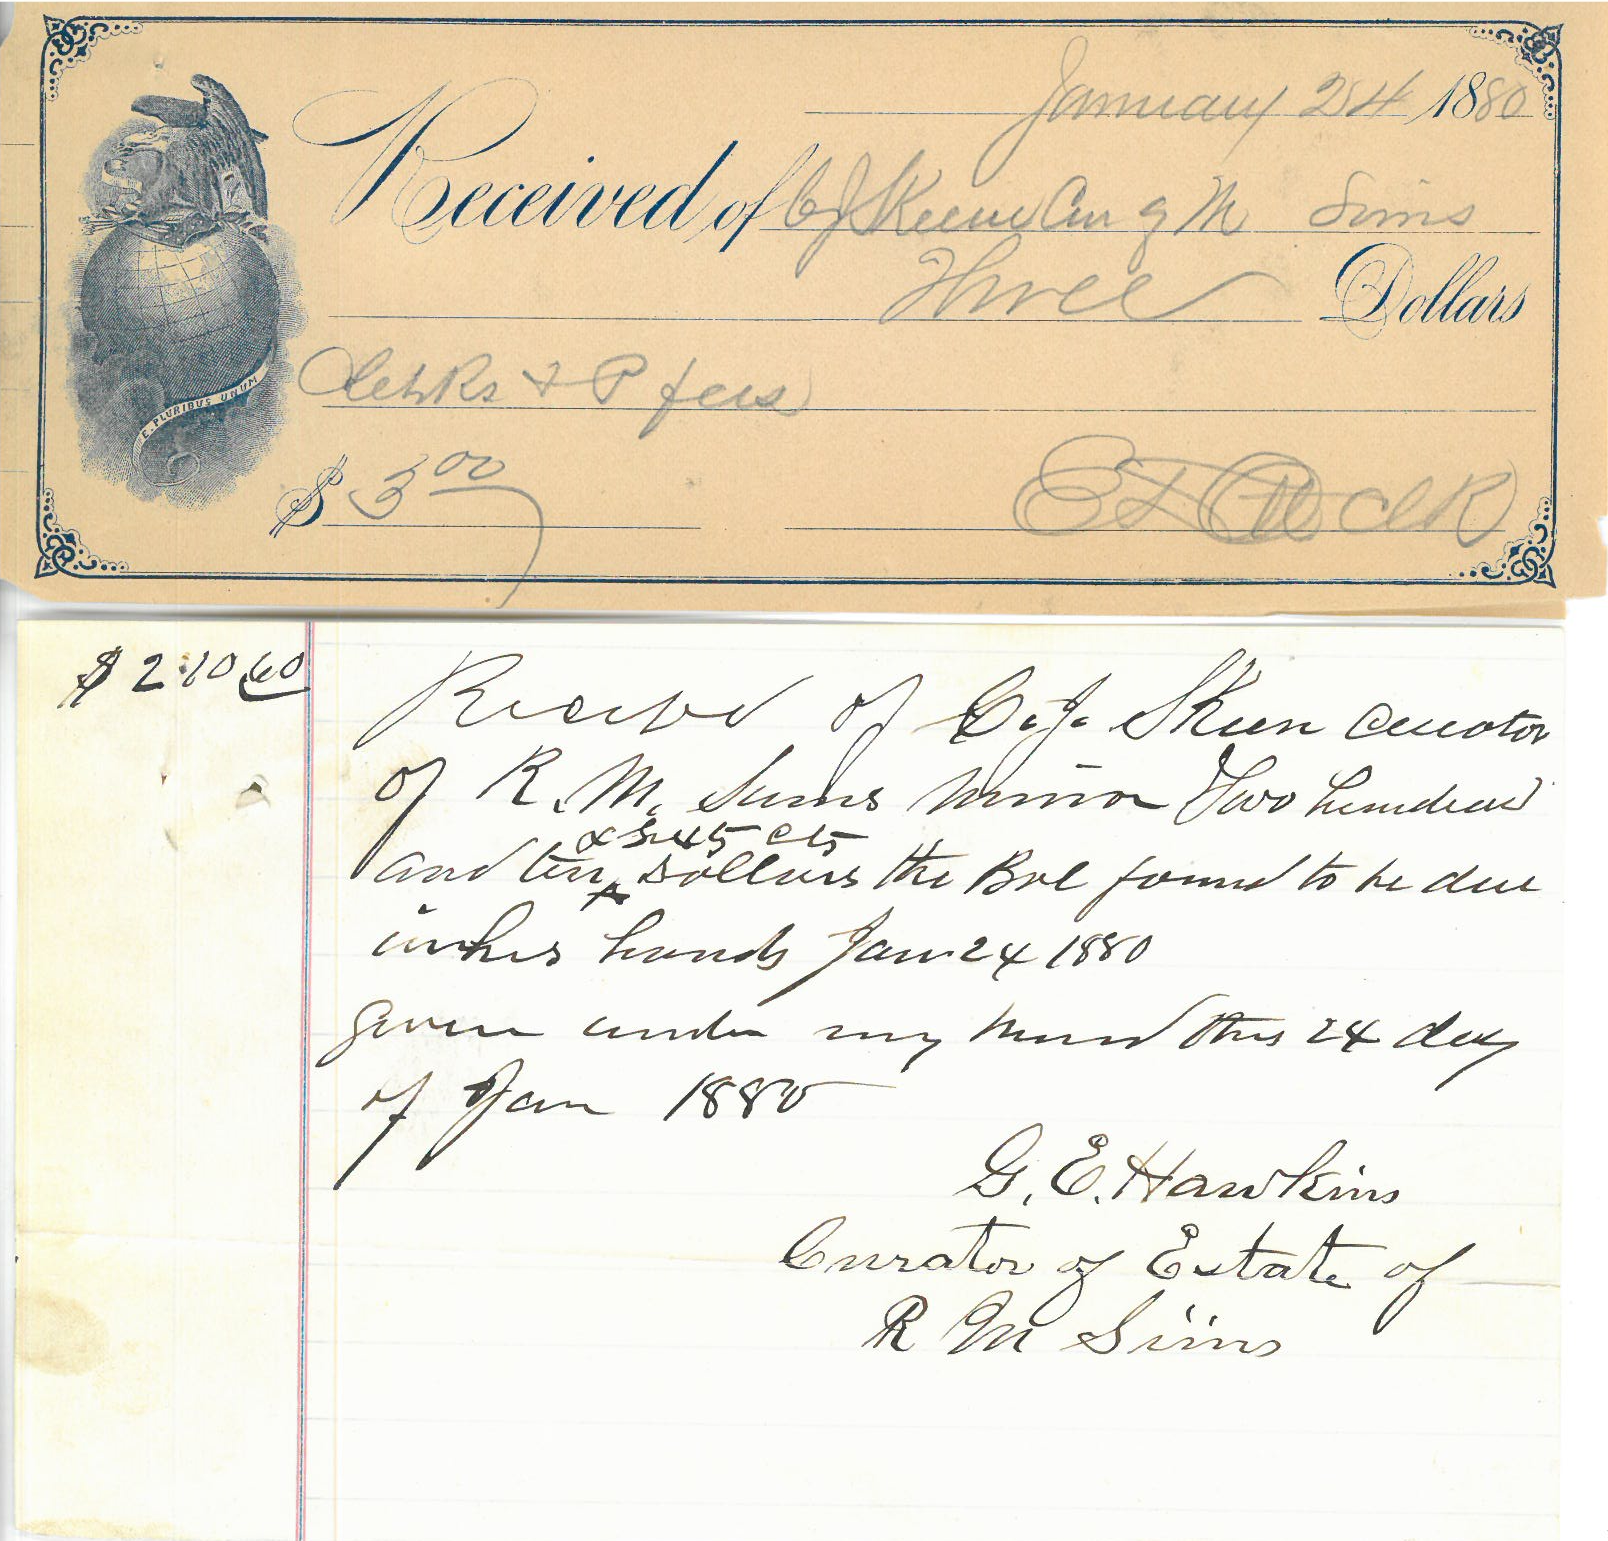 January 24 1880
Received of C J Skeen Cur of M Sims
Three Dollars
Clerks & P fees
E. PLURIBUS UNUM
$ 3 00
$ 210
Received of C. J. Skeen curator
of R. M. Sims minor Two hundred
& 45 cts
and ten dollars the Bal found to be due
in his hands Jan 24 1880
given under my hand this 24 day
of Jan 1880
G. E. Hawkins
Curator of Estate of
R M Sims